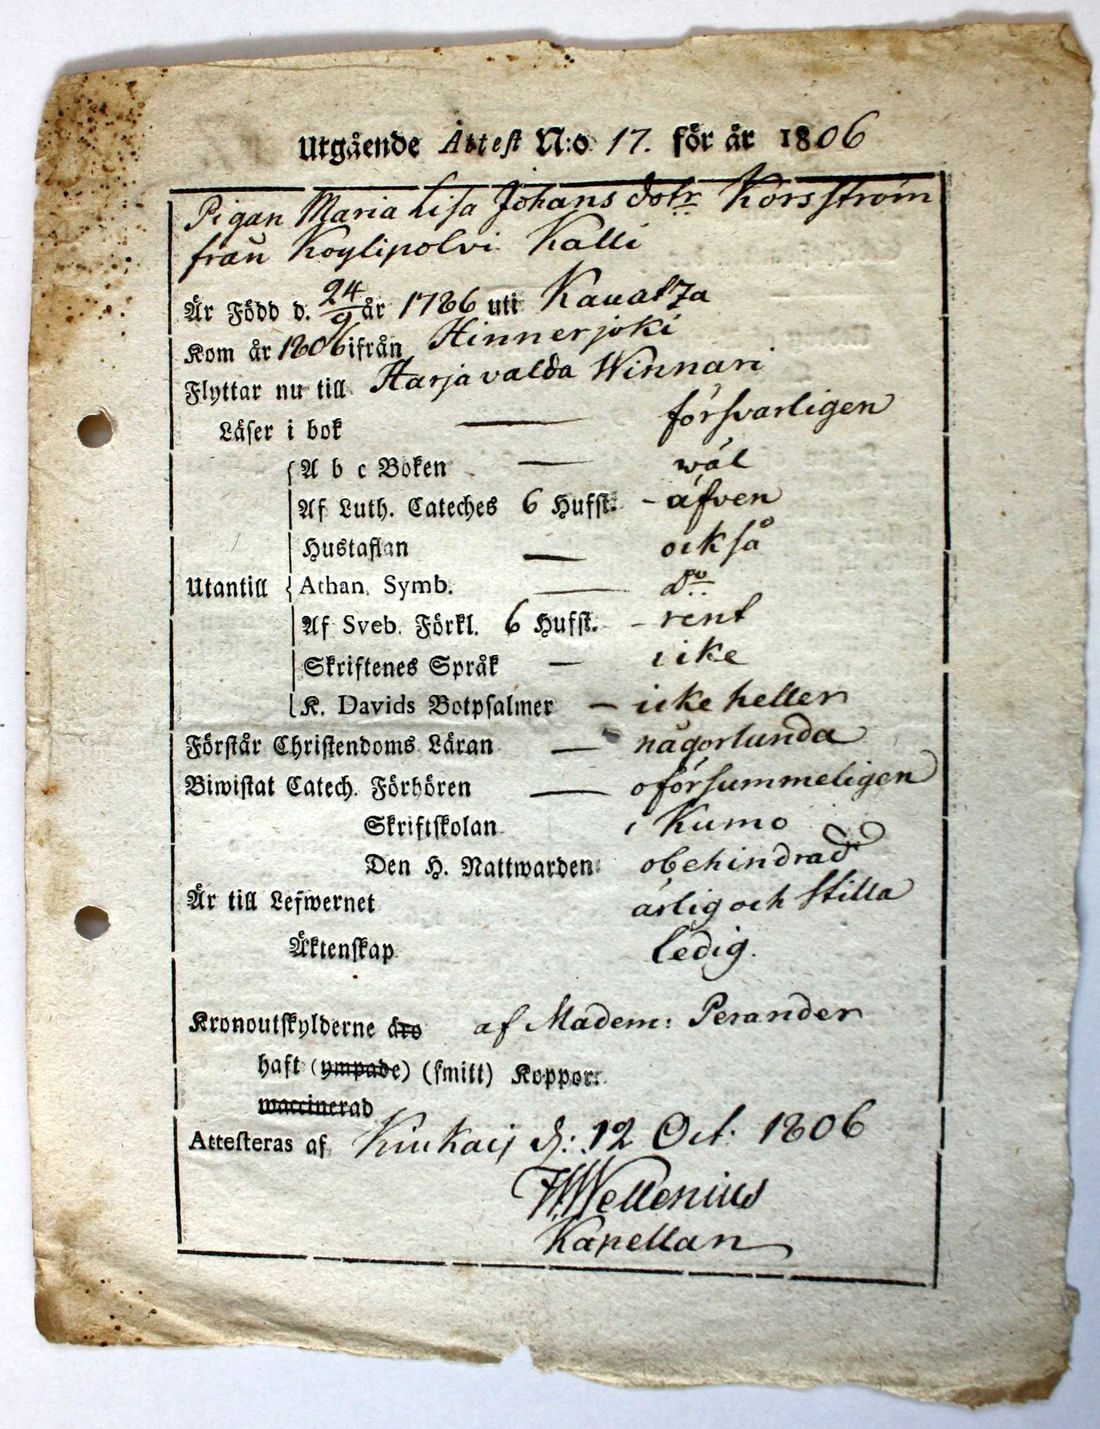 Utgående Attest N:o 17. för år 1806
Pigan Maria Lisa Johans dotr Korsström
frånKöylipolvi Kalli
Är Född d. 24/9 år 1786 uti Kauatza
Kom år 1806 ifrån Hinnerjoki
Flyttar nu till Harjavalda Winnari
Läser i bok — försvarligen
A b c Boken — wäl
Af Luth. Cateches 6 Hufst. - äfven
Hustaflan — också
Utantill Athan. Symb. — do
Af Sveb. Förkl. 6 Hufst. - rent
Skriftenes Språk — icke
K. Davids Botpsalmer — icke heller
Förstår Christendoms Läran — någorlunda
Biwistat Catech. Förhören — oförsummeligen
Skriftskolan i Kumo
Den H. Nattwarden obehindrad
Är till Lefwernet ärlig och stilla
Äktenskap ledig.
Kronoutskylderne äro af Madem: Perander
haft (ympade) (smitt) Koppor.
waccinerad
Attesteras af Kiukais d: 12 Oct. 1806
Wellenius
Kapellan